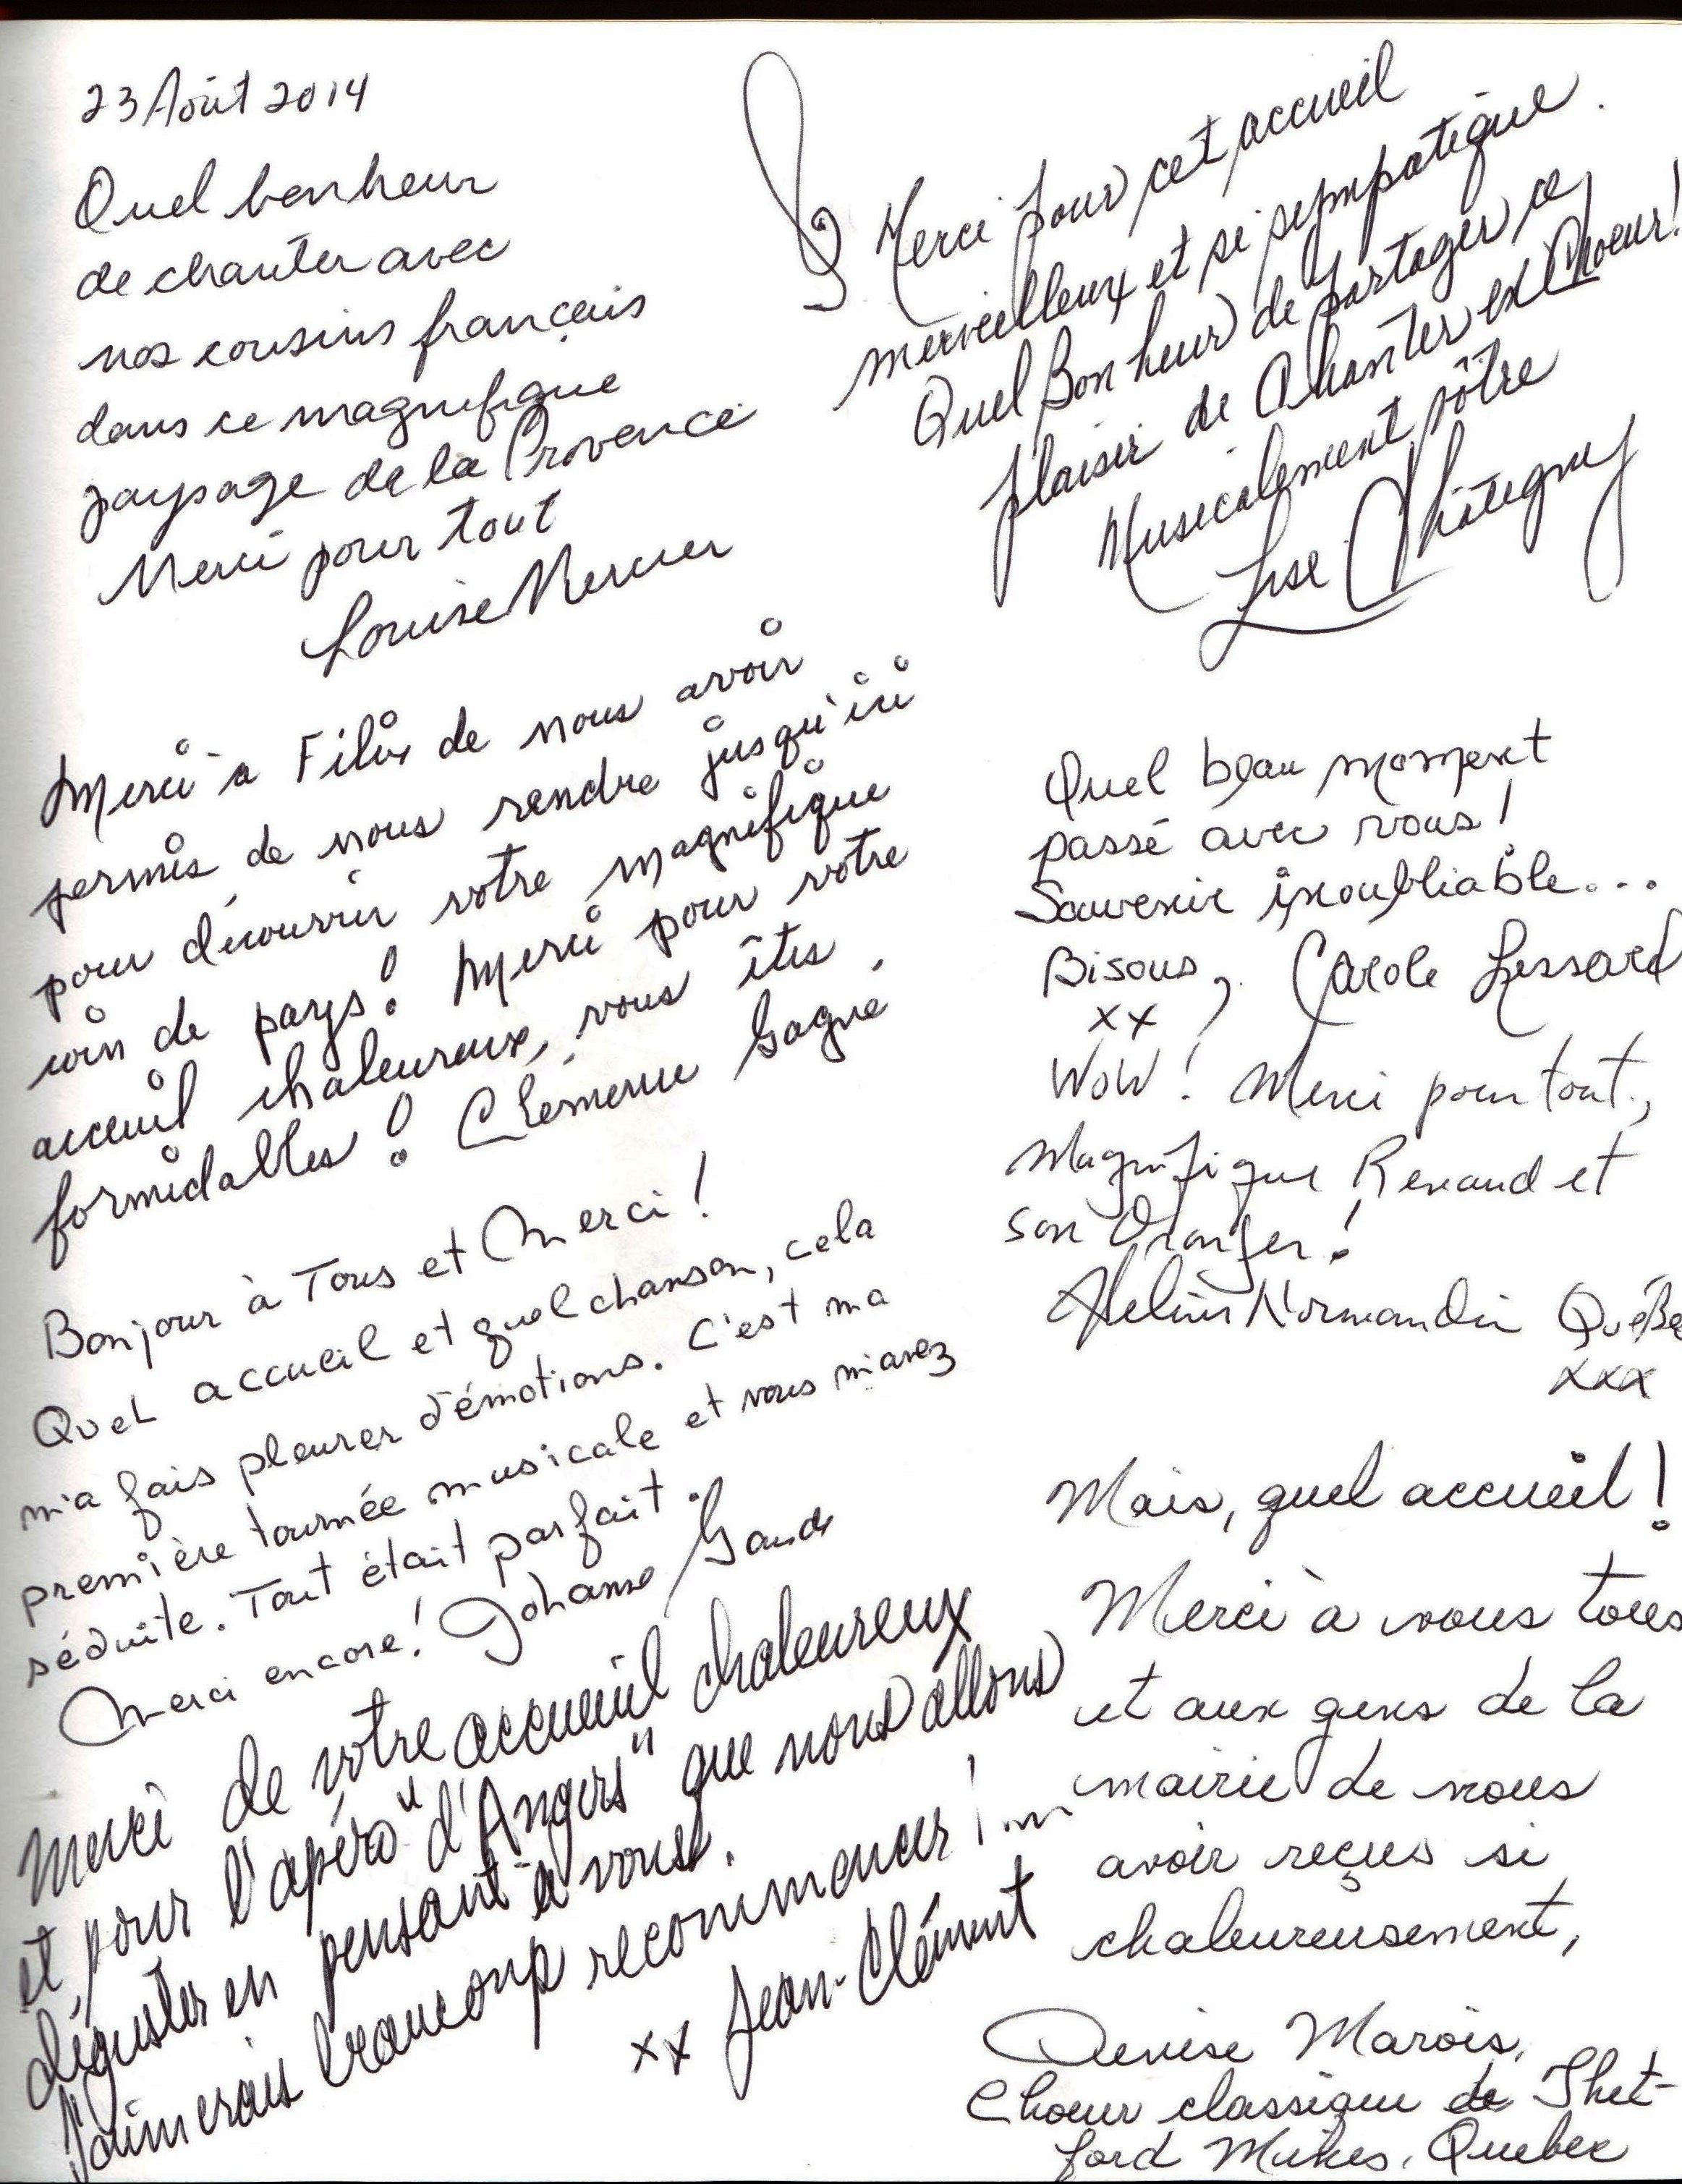 23 Août 2014
Quel bonheur
de chanter avec
nos cousins français
dans ce magnifique
paysage de la Provence
Merci pour tout
Louise Mercier
Merci à Félix de nous avoir
permis de nous rendre jusqu'ici
pour découvrir votre magnifique
coin de pays! Merci pour votre
acceuil chaleureux, vous êtes
formidables! Clémence Gagné
Bonjour à Tous et Merci!
Quel accueil et quel chanson, cela
m'a fais pleurer d'émotions. C'est ma
première tournée musicale et vous m'avez
séduite. Tout était parfait.
Merci encore! Johanne
Merci de votre accueuil chaleureux
et pour l'apéro "d'Angers" que nous allons
déguster en pensant à vous.
J'aimerais beaucoup recommencer!...
xx Jean-Clément
Merci pour cet accueil
merveilleux et si sympatique.
Quel Bonheur de partager ce
plaisir de Chanter en Choeur!
Musicalement vôtre
Lise Châtigny
Quel beau moment
passé avec vous!
Souvenir inoubliable...
Bisous, Carole Lessard
xx
WoW! Merci pour tout,
Magnifique Renaud et
son Oranger!
Normandin Québec
xxx
Mais, quel accueil!
Merci à vous tous
et aux gens de la
mairie de nous
avoir reçus si
chaleureusement,
Denise Marois,
Choeur classique de Thet-
ford Mines, Quebec